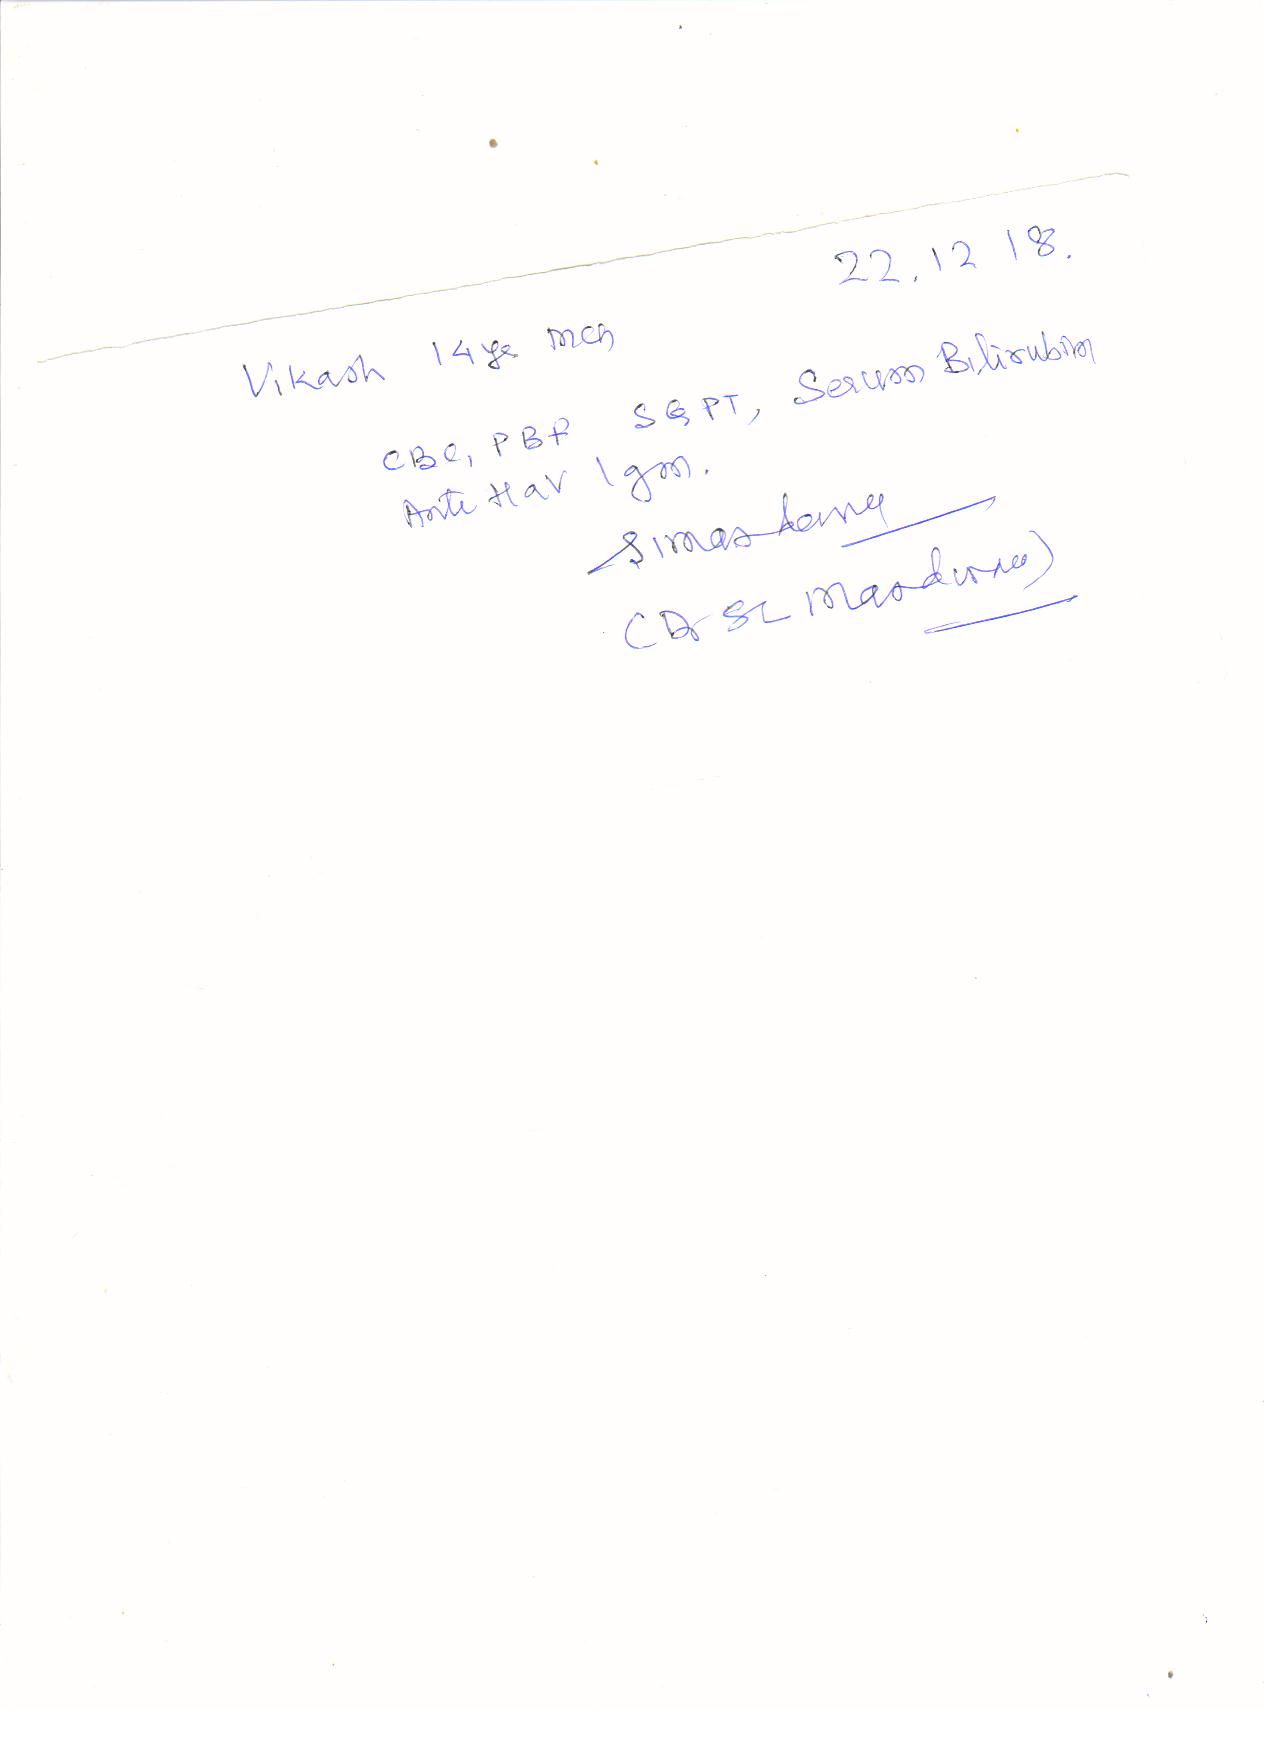 22.12 18.
Vikash 14 yr mch
CBC, PBF SGPT, Serum Bilirubin
Anti Hav Igm.
(Dr SL